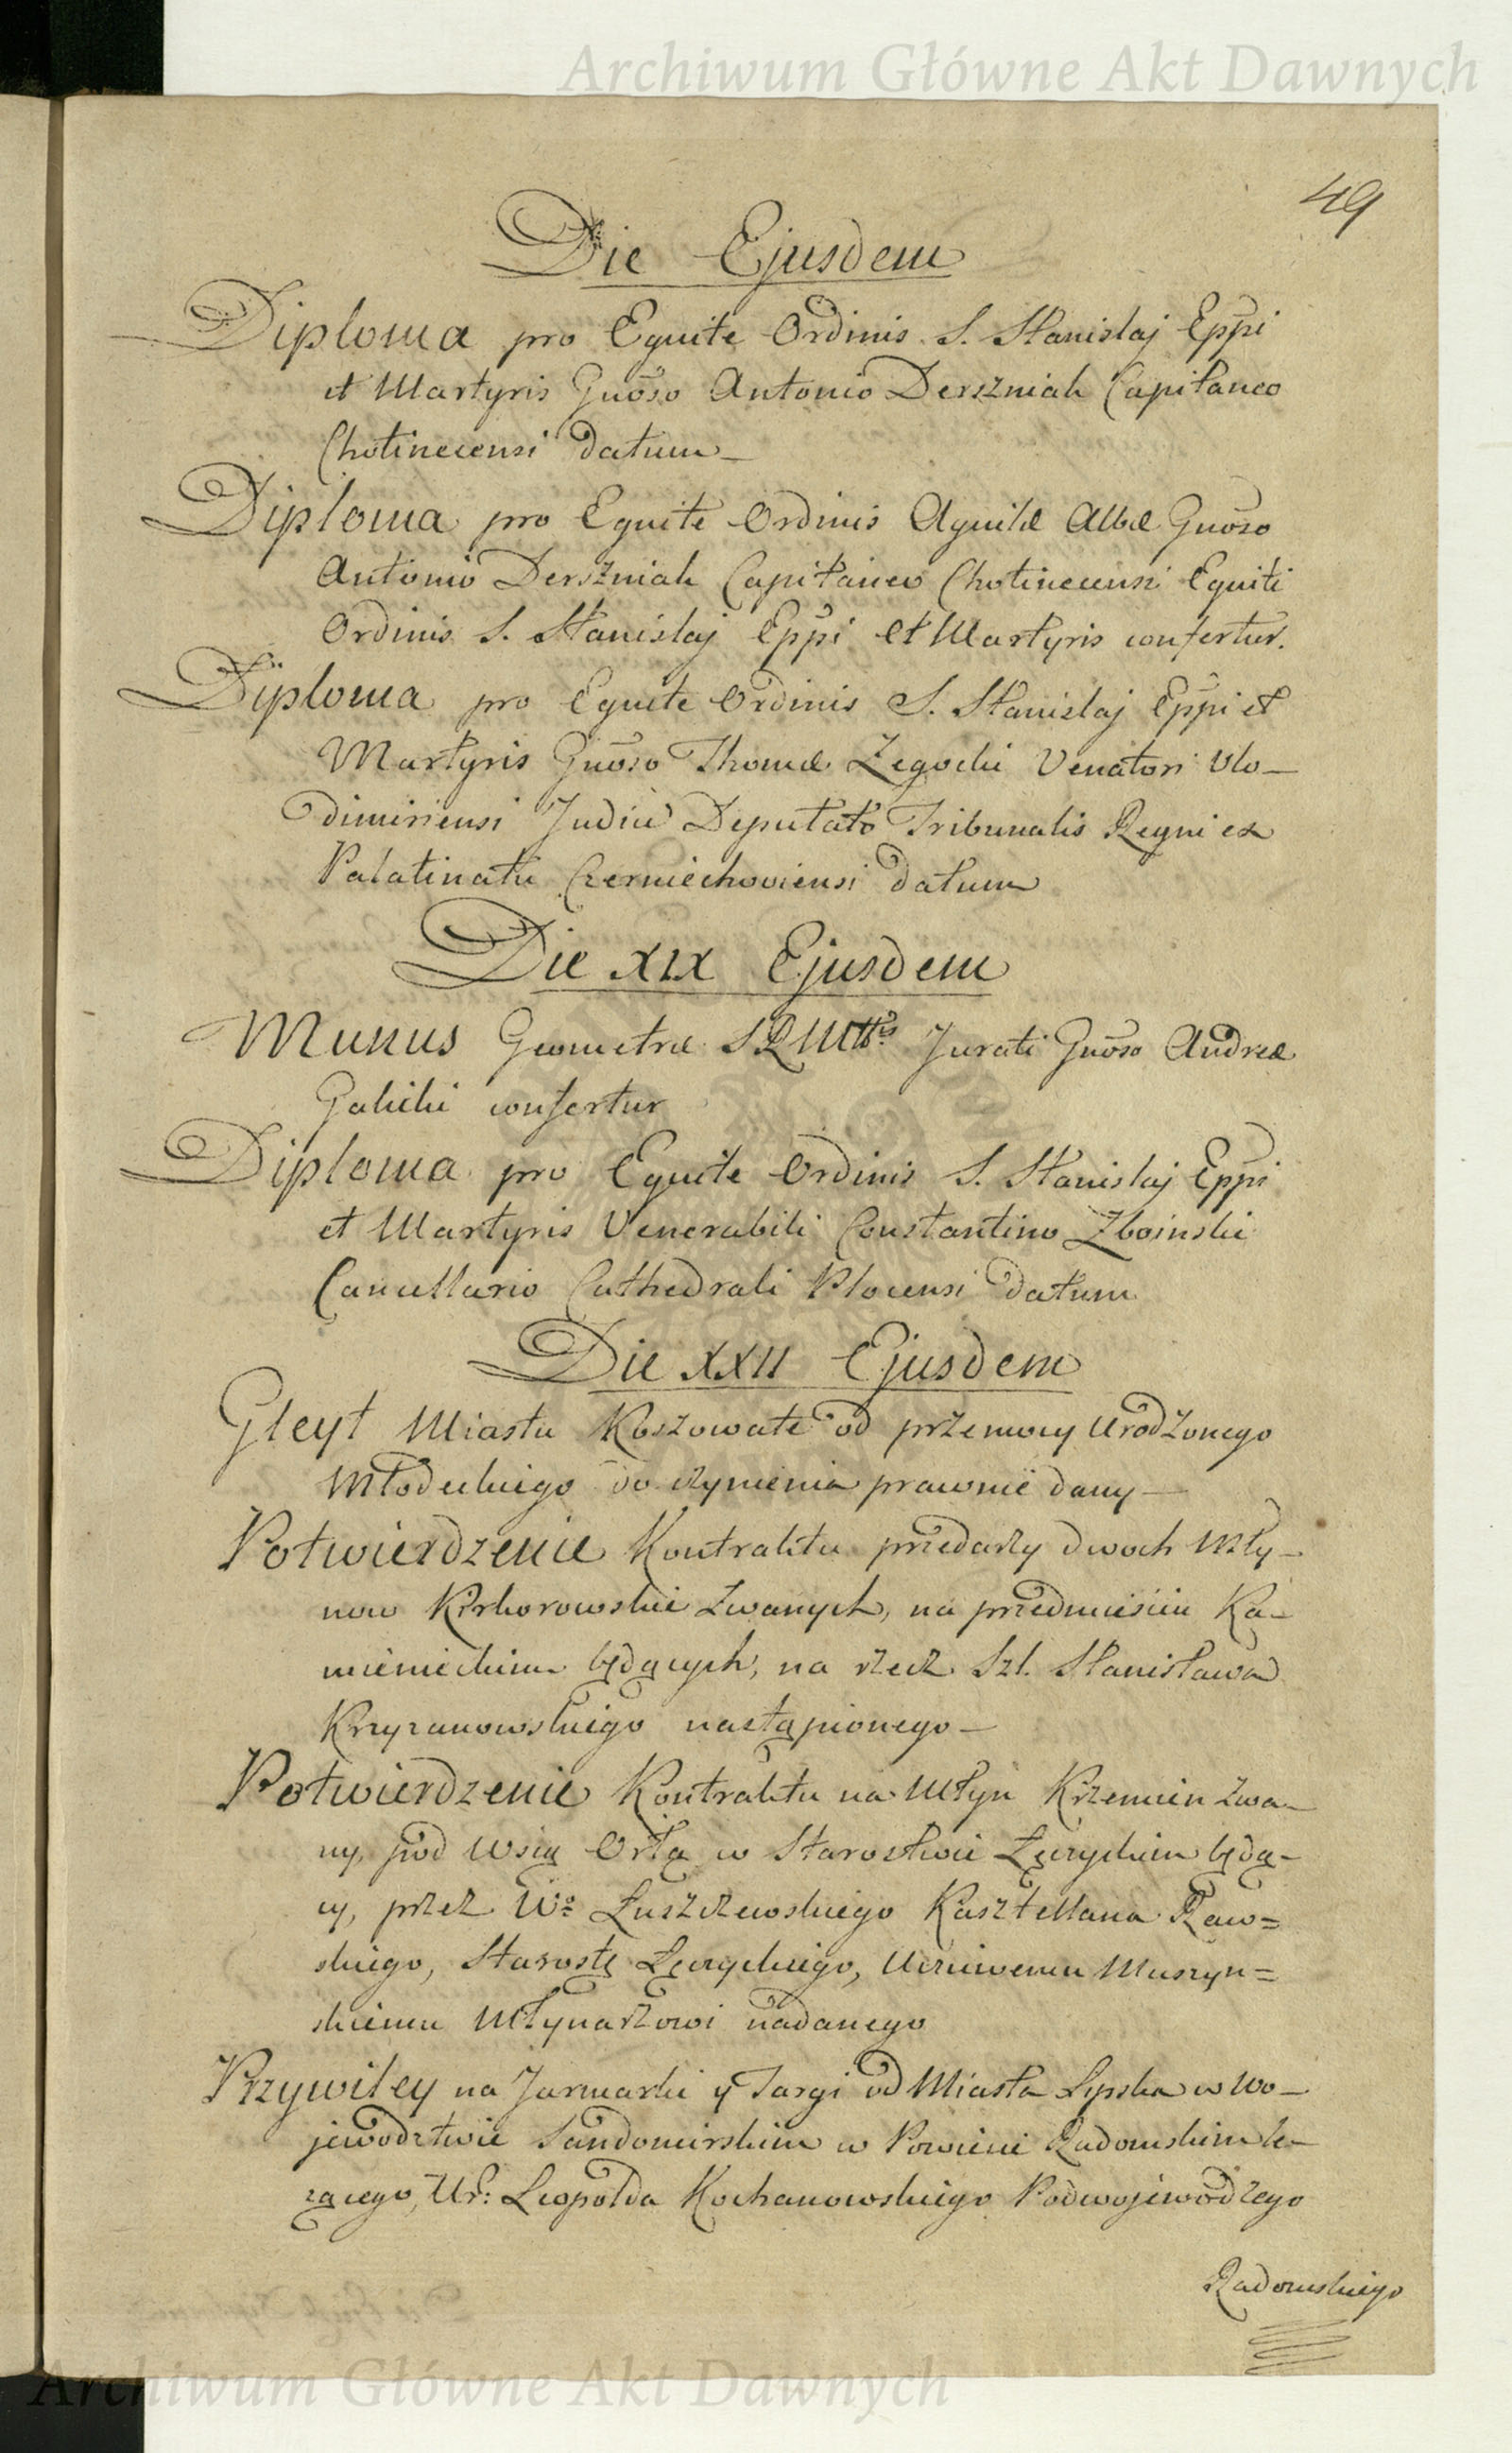 Archiwum Główne Akt Dawnych
49
Die Ejusdem
Diploma pro Equite Ordinis S. Stanislaj Eppi
et Martyris Gnoso Antonio Derszniak Capitaneo
Chotinecensi datum
Diploma pro Equite Ordinis Aquilæ Albæ Gnoso
Antonio Derszniak Capitaneo Chotinecensi Equiti
Ordinis S. Stanislaj Eppi et Martyris confertur.
Diploma pro Equite Ordinis S. Stanislaj Eppi et
Martyris Gnoso Thomæ Zegocki Venatori Vlo-
dimiriensi Judici Deputato Tribunalis Regni ex
Palatinatu Czerniechoviensi datum
Die XIX Ejusdem
Munus Geometræ SRMttis Jurati Gnoso Andreæ
Galicki confertur
Diploma pro Equite Ordinis S. Stanislaj Eppi
et Martyris Venerabili Constantino Zboinski
Cancellario Cathedrali Plocensi datum
Die XXII Ejusdem
Gleyt Miastu Koszowate od przemocy Urodzonego
Młodeckiego do czynienia prawnie dany
Potwierdzenie Kontraktu przedaży dwoch Mły-
now Kirkorowskie zwanych, na przedmieściu Ka-
mienieckim będących, na rzecz Szl. Stanisława
Krzyzanowskiego nastąpionego
Potwierdzenie Kontraktu na Młyn Krzemien zwa-
ny, pod Wsią Orłą w Starostwie Łęczyckim będą-
cy, przez Wo Łuszczewskiego Kasztellana Raw=
skiego, Starostę Łęczyckiego, Uczciwemu Muszyn=
skiemu Młynarzowi nadanego
Przywiley na Jarmarki y Targi od Miasta Lipska w Wo-
jewodztwie Sandomirskim w Powiecie Radomskim le-
zącego, Ur: Leopolda Kochanowskiego Podwojewodzego
Radomskiego
Archiwum Główne Akt Dawnych